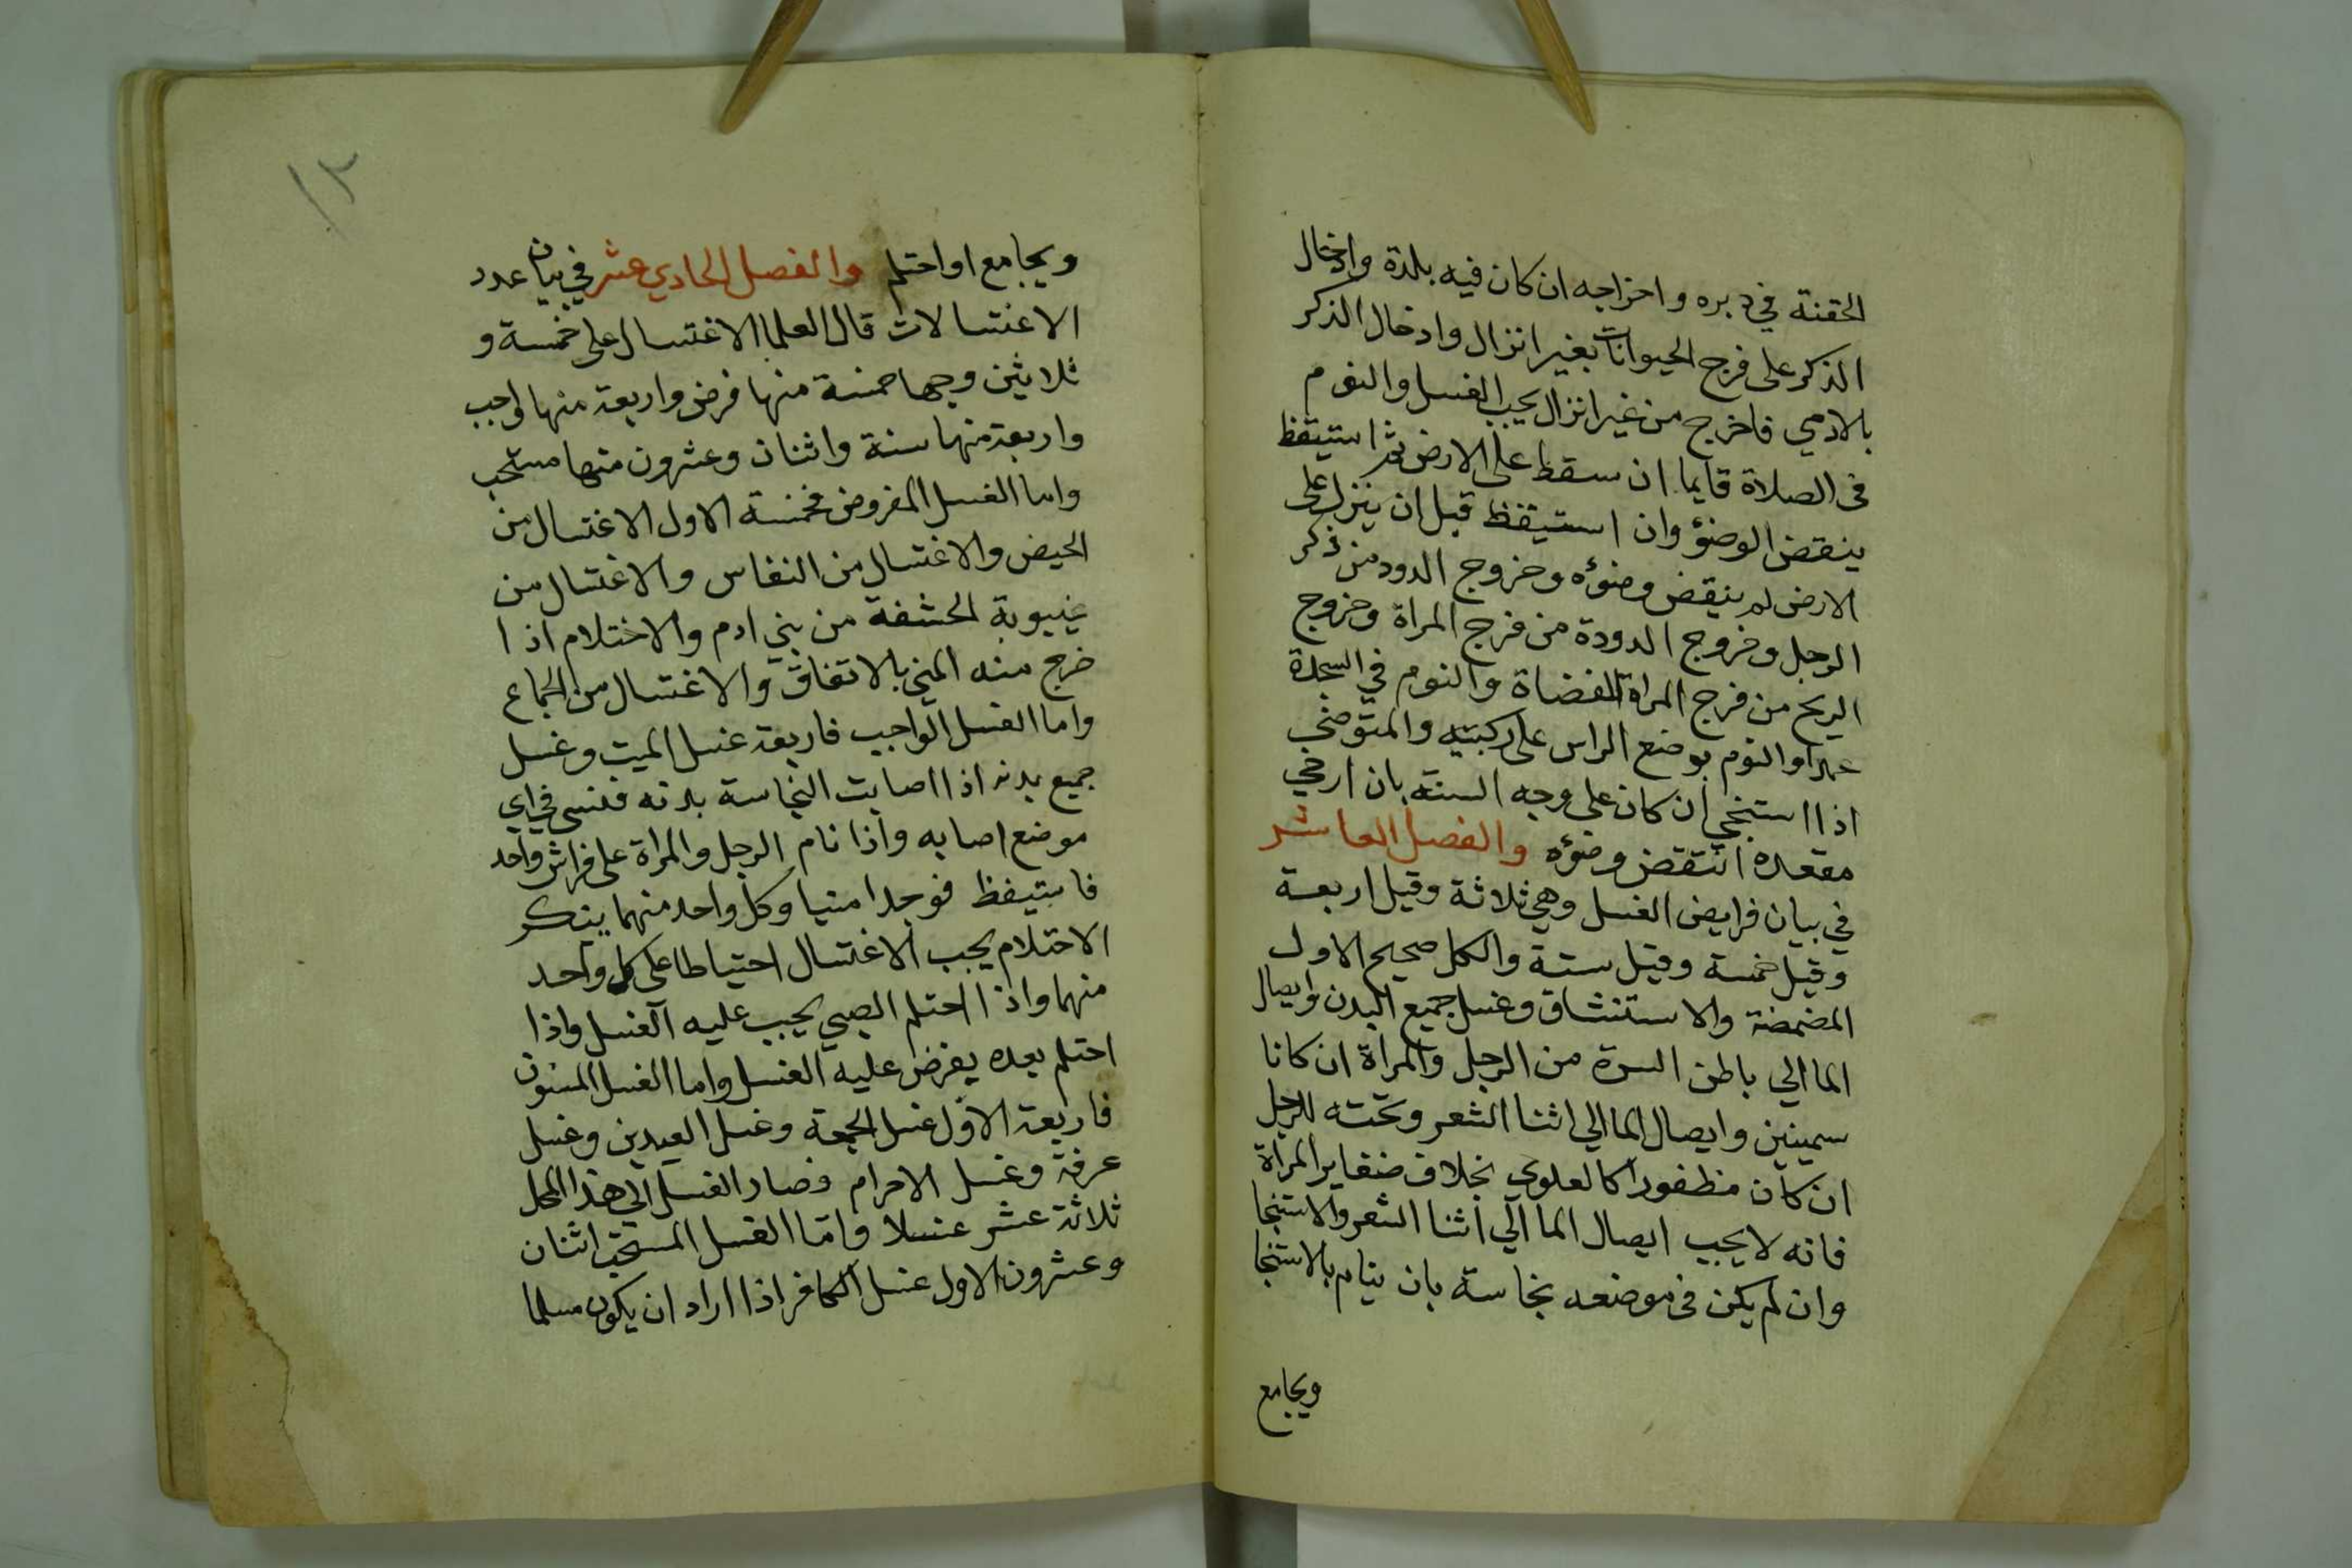 الحقنة في دبره واخراجه ان كان فيه بلة وادخال
الذكر على فرج الحيوانات بغير انزال وادخال الذكر
بالادمي فاخرج من غير انزال يجب الغسل والنوم
في الصلاة قايما ان سقط على الارض ثم استيقظ
ينقض الوضؤ وان استيقظ قبل ان ينزل على
الارض لم ينقض وضوءه وخروج الدود من ذكر
الرجل وخروج الدودة من فرج المراة وخروج
الريح من فرج المراة المفضاة والنوم في السجدة
عمدا والنوم بوضع الراس على ركبتيه والمتوضي
اذا استنجي ان كان على وجه السنة بان ارخي
مقعده انتقض وضؤه والفصل العاشر
في بيان فرايض الغسل وهي ثلاثة وقيل اربعة
وقيل خمسة وقيل ستة والكل صحيح الاول
المضمضة والاستنشاق وغسل جميع البدن وايصال
الما الي باطن السرة من الرجل والمراة ان كانا
سمينين وايصال الما الي اثنا الشعر وتحته للرجل
ان كان مظفورا كالعلوي بخلاف ضفاير المراة
فانه لا يجب ايصال الما الي اثنا الشعر والاستنجا
وان لم يكن في موضعه نجاسة بان ينام بالاستنجا
ويجامع
١٢
ويجامع او احتلم والفصل الحادي عشر في بيان عدد
الاغتسالات قال العلما الاغتسال على خمسة و
ثلاثين وجها خمسة منها فرض واربعة منها واجب
واربعة منها سنة واثنان وعشرون منها مستحب
واما الغسل المفروض فخمسة الاول الاغتسال من
الحيض والاغتسال من النفاس والاغتسال من
غيبوبة الحشفة من بني ادم والاختلام اذا
خرج منه المني بالاتفاق والاغتسال من الجماع
واما الغسل الواجب فاربعة غسل الميت وغسل
جميع بدنه اذا اصابت النجاسة بدنه فنسي في اي
موضع اصابه واذا نام الرجل والمراة على فراش واحد
فاستيقظ فوجدا منيا وكل واحد منهما ينكر
الاحتلام يجب الاغتسال احتياطا على كل واحد
منهما واذا احتلم الصبي يجب عليه الغسل واذا
احتلم بعده يفرض عليه الغسل واما الغسل المسنون
فاربعة الاول غسل الجمعة وغسل العيدين وغسل
عرفة وغسل الاحرام فصار الغسل الي هذا المحل
ثلاثة عشر غسلا واما الغسل المستحب اثنان
وعشرون الاول غسل الكافر اذا اراد ان يكون مسلما